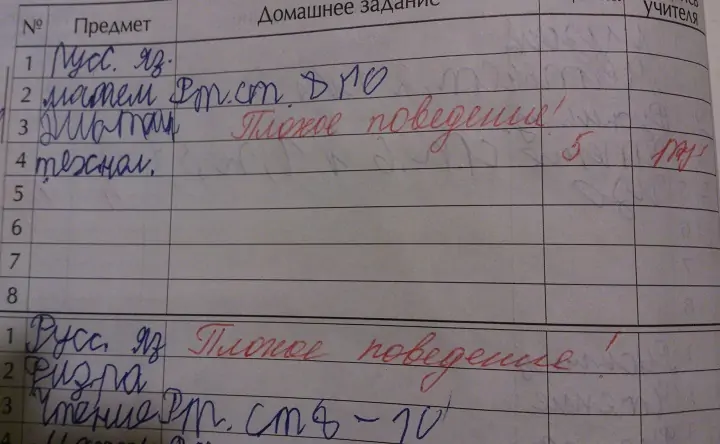 № Предмет Домашнее задание учителя
1 Русс. яз.
2 матем Рт. ст. 8 №10
3 Плохое поведение!
4 технол. 5
5
6
7
8
1 Русс. яз Плохое поведение!
2 Физра
3 Чтение Рт. ст 8 - 10
4